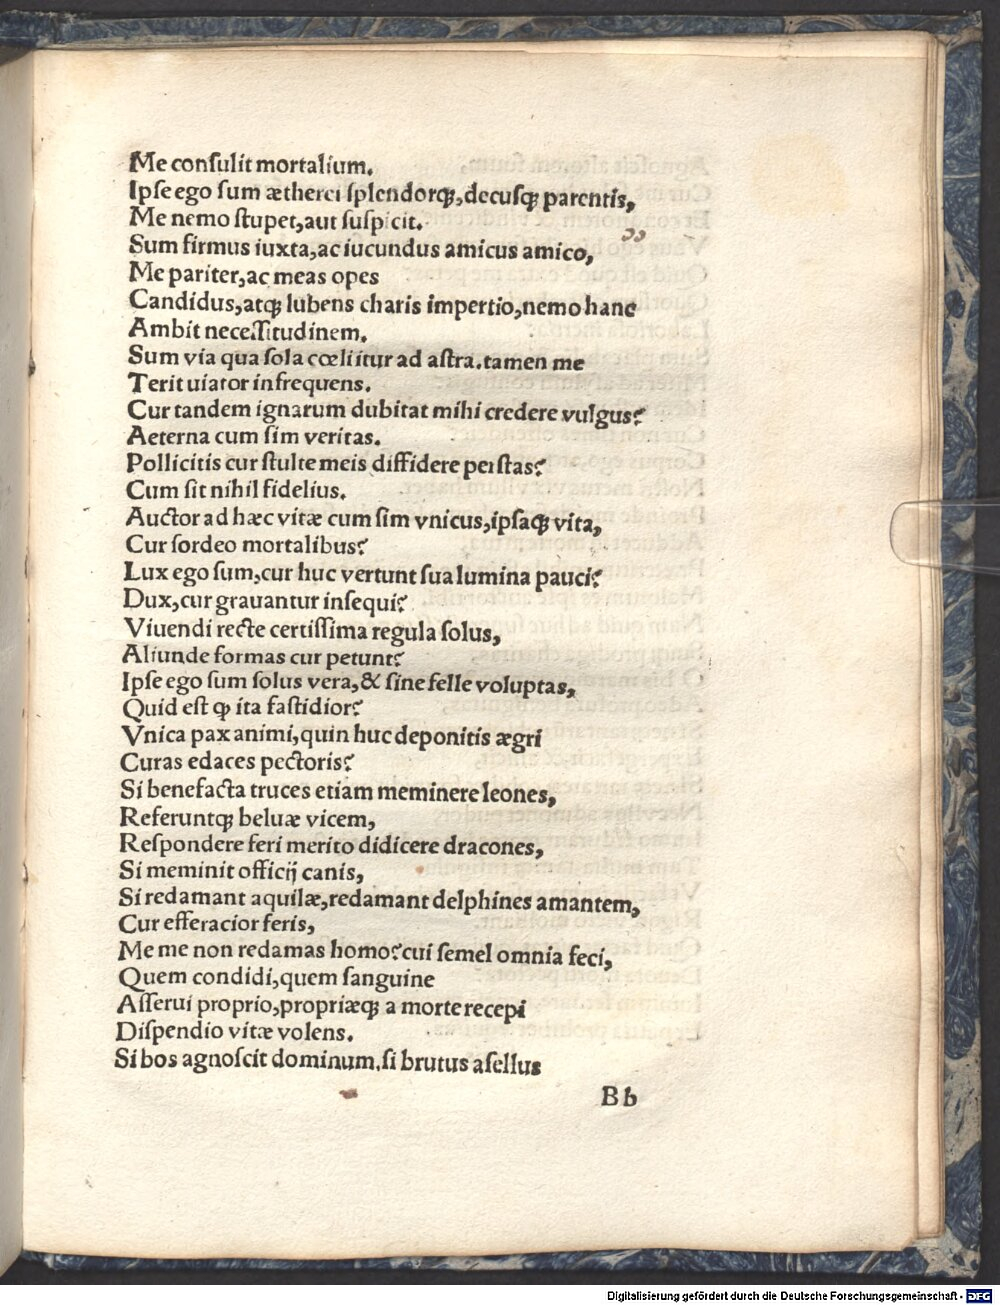 Me conſulit mortalium.
Ipſe ego ſum ætherei ſplendorqꝫ, decuſqꝫ parentis,
Me nemo ſtupet, aut ſuſpicit.
Sum firmus iuxta, ac iucundus amicus amico,
Me pariter, ac meas opes
Candidus, atqꝫ lubens charis impertio, nemo hanc
Ambit neceſſitudinem.
Sum via qua ſola cœli itur ad aſtra. tamen me
Terit uiator infrequens.
Cur tandem ignarum dubitat mihi credere vulgus?
Aeterna cum ſim veritas.
Pollicitis cur ſtulte meis diffidere perſtas?
Cum ſit nihil fidelius.
Auctor ad hæc vitæ cum ſim vnicus, ipſaqꝫ vita,
Cur ſordeo mortalibus?
Lux ego ſum, cur huc vertunt ſua lumina pauci?
Dux, cur grauantur inſequi?
Viuendi recte certiſſima regula ſolus,
Aliunde formas cur petunt?
Ipſe ego ſum ſolus vera, & ſine felle voluptas,
Quid eſt ꝙ ita faſtidior?
Vnica pax animi, quin huc deponitis ægri
Curas edaces pectoris?
Si benefacta truces etiam meminere leones,
Referuntqꝫ beluæ vicem,
Reſpondere feri merito didicere dracones,
Si meminit officij canis,
Si redamant aquilæ, redamant delphines amantem,
Cur efferacior feris,
Me me non redamas homo? cui ſemel omnia feci,
Quem condidi, quem ſanguine
Aſſerui proprio, propriæqꝫ a morte recepi
Diſpendio vitæ volens.
Si bos agnoſcit dominum, ſi brutus aſellus
Bb
Digitalisierung gefördert durch die Deutsche Forschungsgemeinschaft - DFG